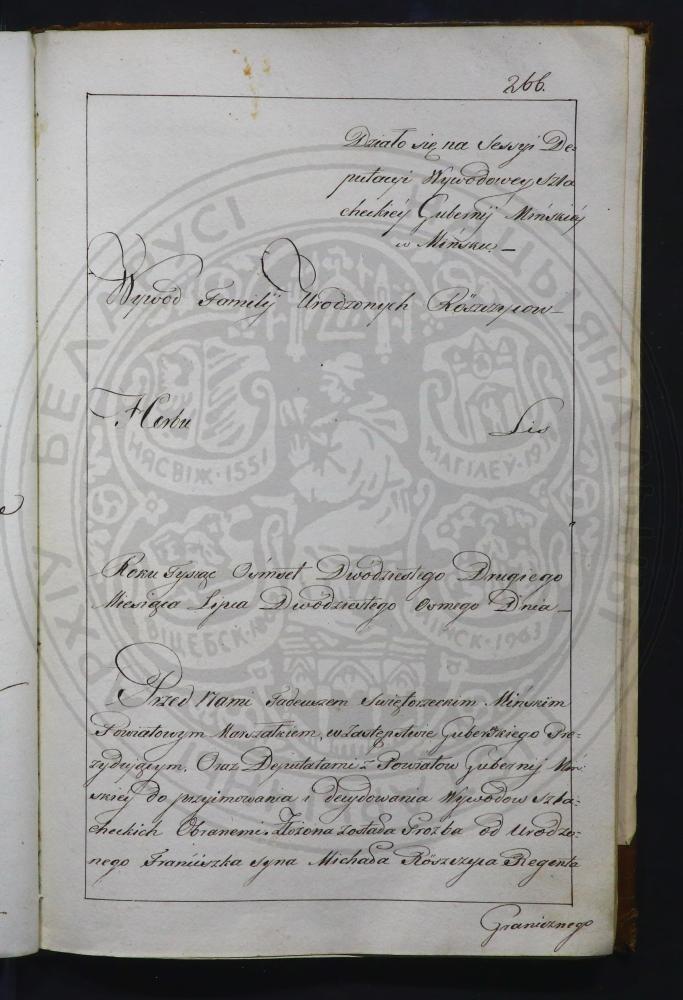 266.
Działo się na Sessyi De=
putacyi Wywodowey Szla
checkiéy Gubernij Mińskiéy
w Mińsku. —
Wywod Familij Urodzonych Röszczycow —
Herbu Lis
Roku Tysiąc Ośmset Dwódziestego Drugiego
Miesiąca Lipca Dwódziestego Osmego Dnia —
Przed Nami Tadeuszem Świętorzeckim Mińskim
Powiatowym Marszałkiem, w Zastępstwie Guberskiego Pre=
zydującym. Oraz Deputatami z Powiatow Gubernij Miń=
skiéy do przyjmowania i decydowania Wywodow Szla=
checkich Obranemi. Złożona została Proźba od Urodzo=
nego Franciszka syna Michała Röszczyca Regenta
Granicznego